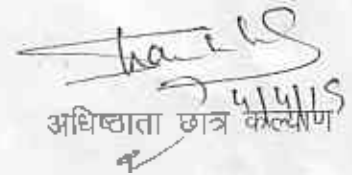 4/4/15
अधिष्ठाता छात्र कल्याण